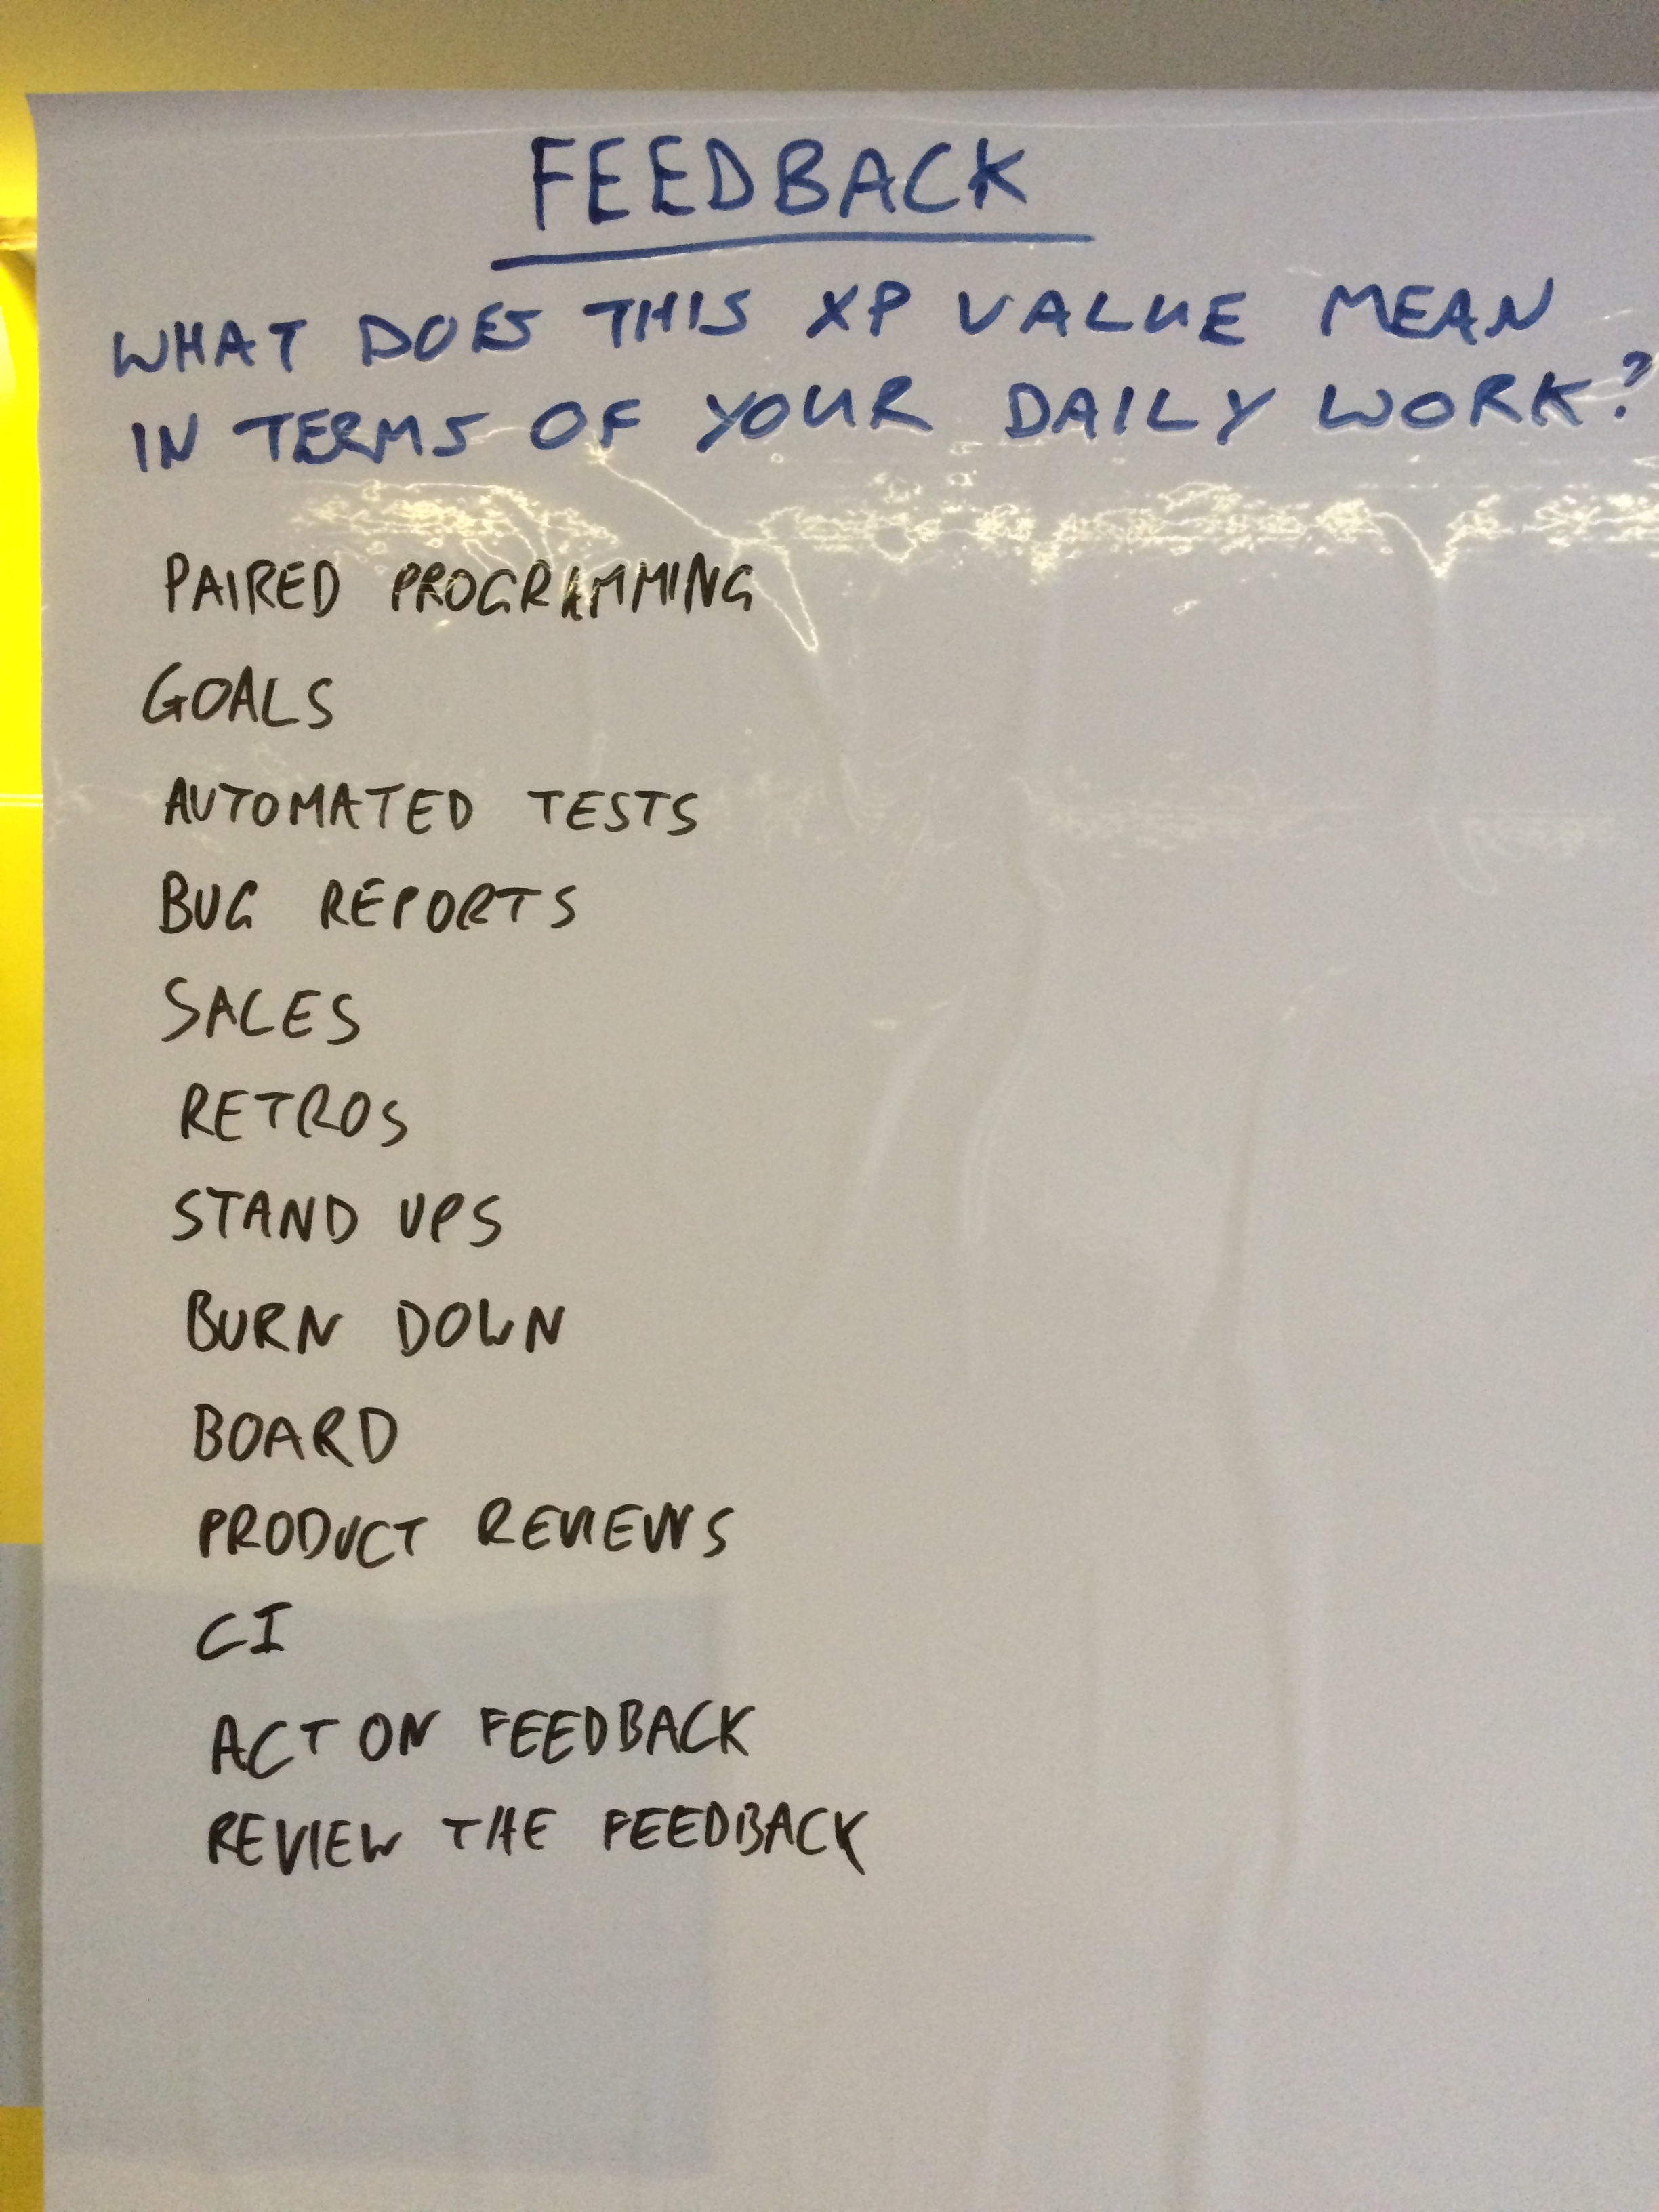 FEEDBACK
WHAT DOES THIS XP VALUE MEAN
IN TERMS OF YOUR DAILY WORK?
PAIRED PROGRAMMING
GOALS
AUTOMATED TESTS
BUG REPORTS
SALES
RETROS
STAND UPS
BURN DOWN
BOARD
PRODUCT REVIEWS
CI
ACT ON FEEDBACK
REVIEW THE FEEDBACK